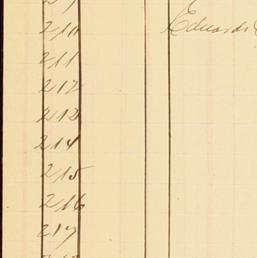 210 Edwards
211
212
213
214
215
216
217